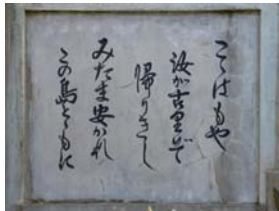 こゝはもや
汝が古里ぞ
帰りきし
みたま安かれ
この島とゝもに